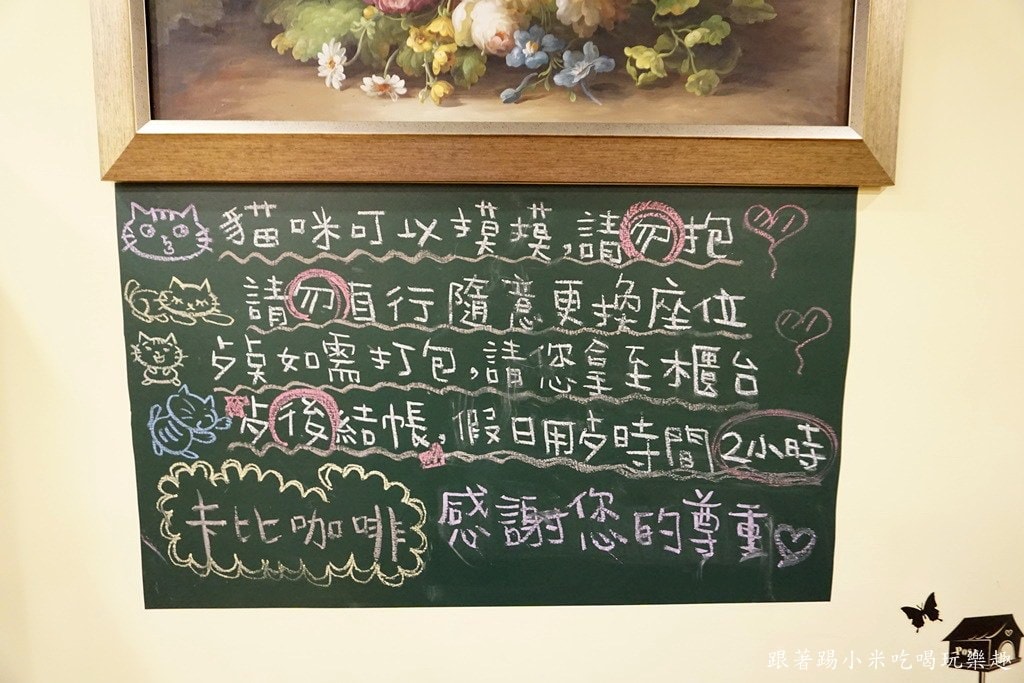 貓咪可以摸摸,請勿抱
請勿自行隨意更換座位
歺奌如需打包,請您拿至櫃台
歺後結帳,假日用歺時間2小時
卡比咖啡 感謝您的尊重
跟著踢小米吃喝玩樂趣